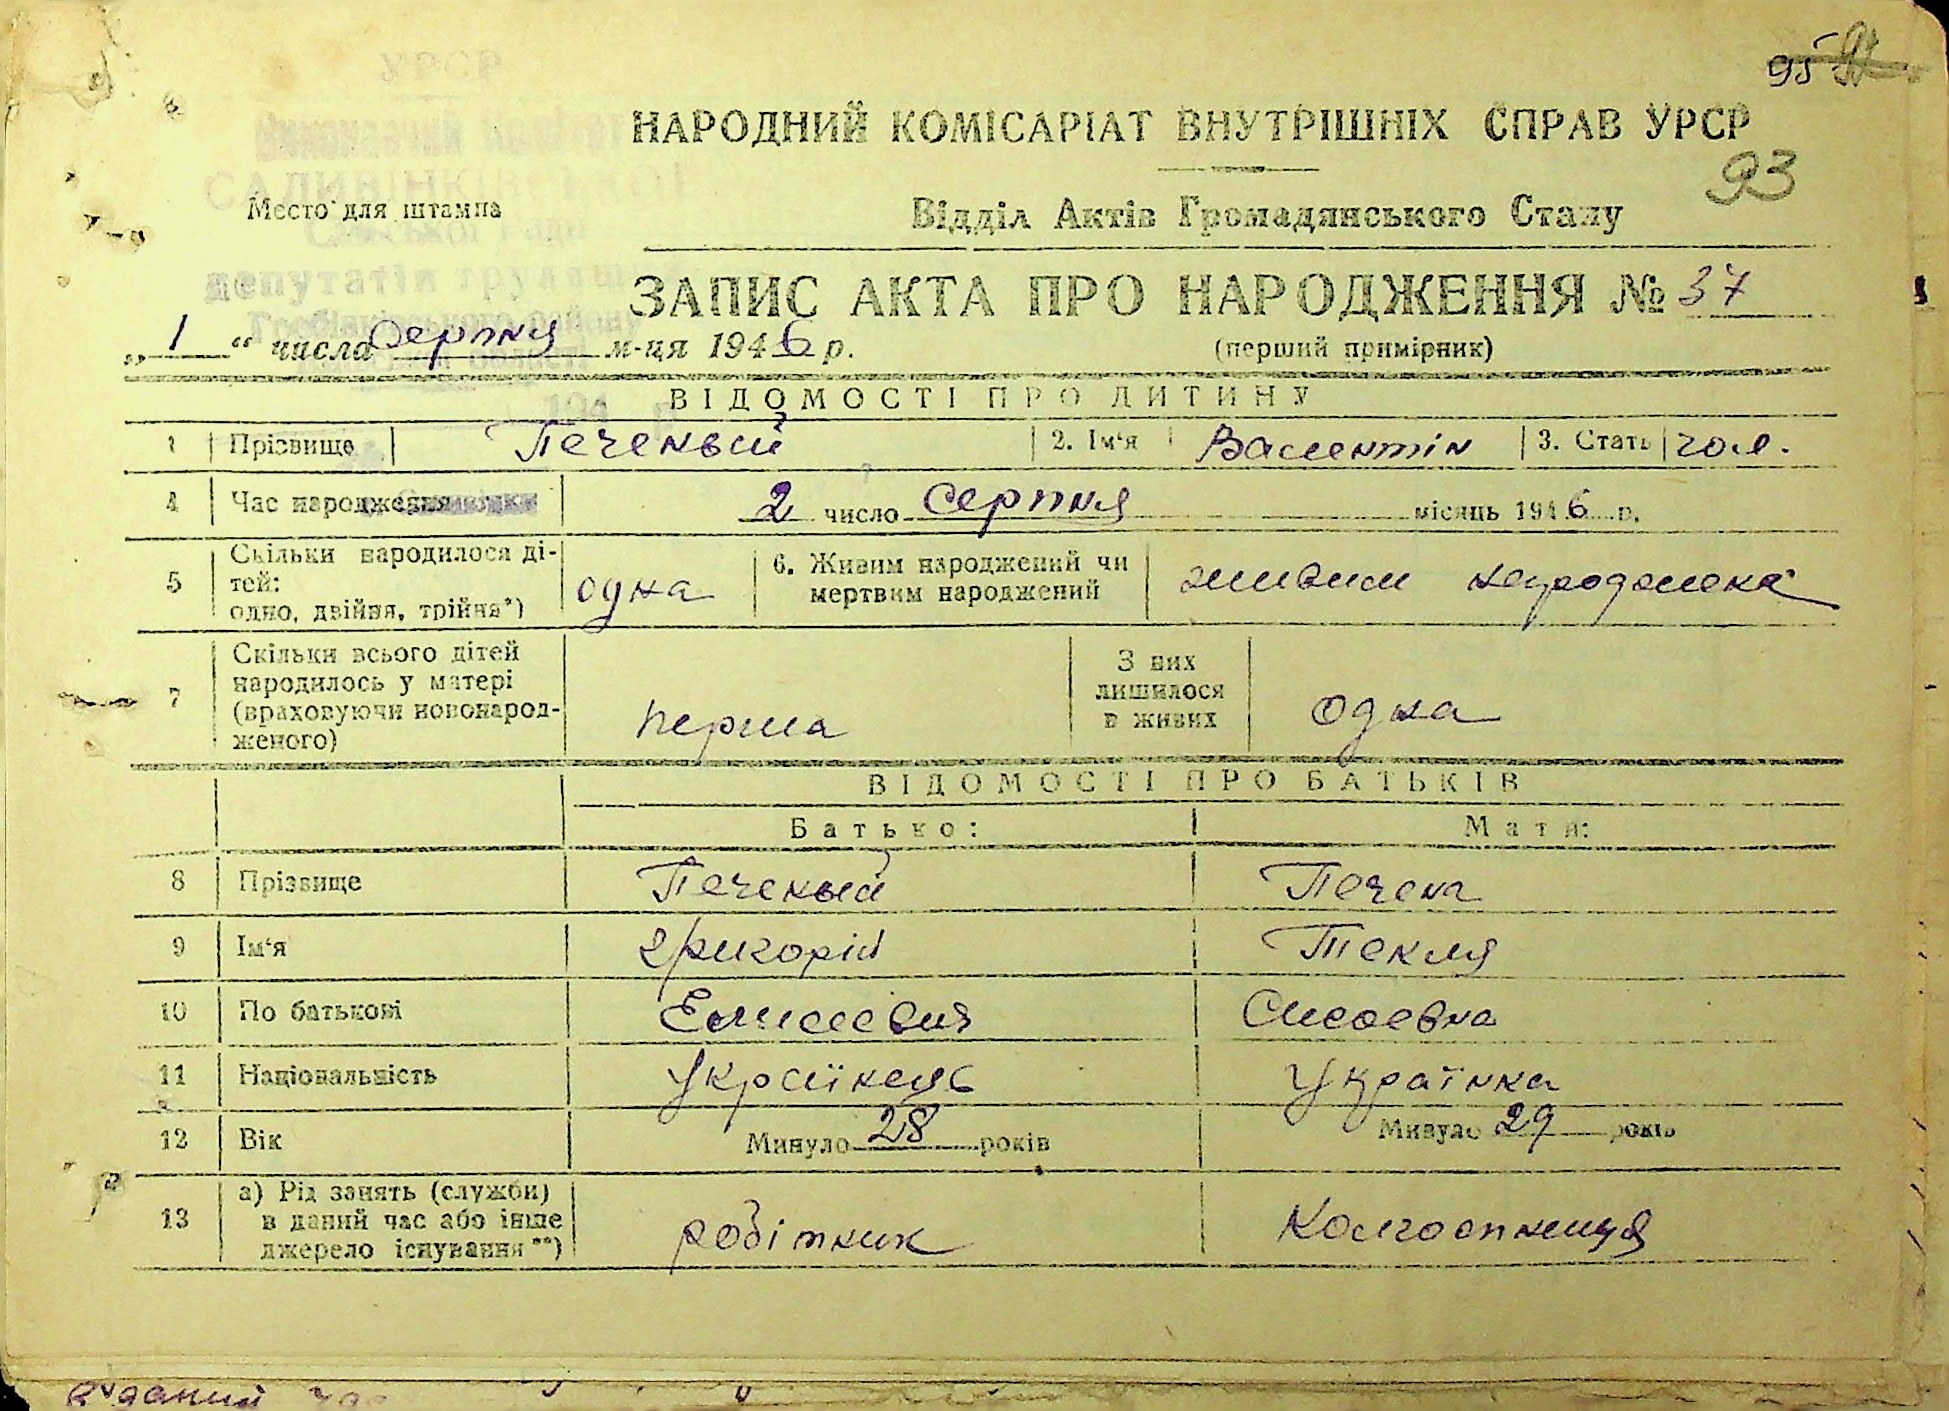 95
НАРОДНИЙ КОМІСАРІАТ ВНУТРІШНІХ СПРАВ УРСР
93
УРСР
Виконавчий комітет
САЛИВІНКІВСЬКОЇ
Сільської Ради
депутатів трудящ
Место для штампа
Відділ Актів Громадянського Стану
ЗАПИС АКТА ПРО НАРОДЖЕННЯ № 37
„ 1 “ числа серпня м-ця 1946 р.
(перший примірник)
ВІДОМОСТІ ПРО ДИТИНУ
1 Прізвище Печеный 2. Ім'я Валентін 3. Стать чол.
4 Час народження 2 число серпня місяць 1946 р.
5 Скільки народилося ді-
тей:
одно, двійня, трійня*) одна 6. Живим народжений чи
мертвим народжений живим народжена
7 Скільки всього дітей
народилось у матері
(враховуючи новонарод-
женого) перша З них
лишилося
в живих одна
ВІДОМОСТІ ПРО БАТЬКІВ
Батько: Мати:
8 Прізвище Печеный Печена
9 Ім'я Григорій Текля
10 По батькові Елисеевич Сисоевна
11 Національність Українець Українка
12 Вік Минуло 28 років Минуло 29 років
13 а) Рід занять (служби)
в даний час або інше
джерело існування **) робітник Колгоспниця
в даний час